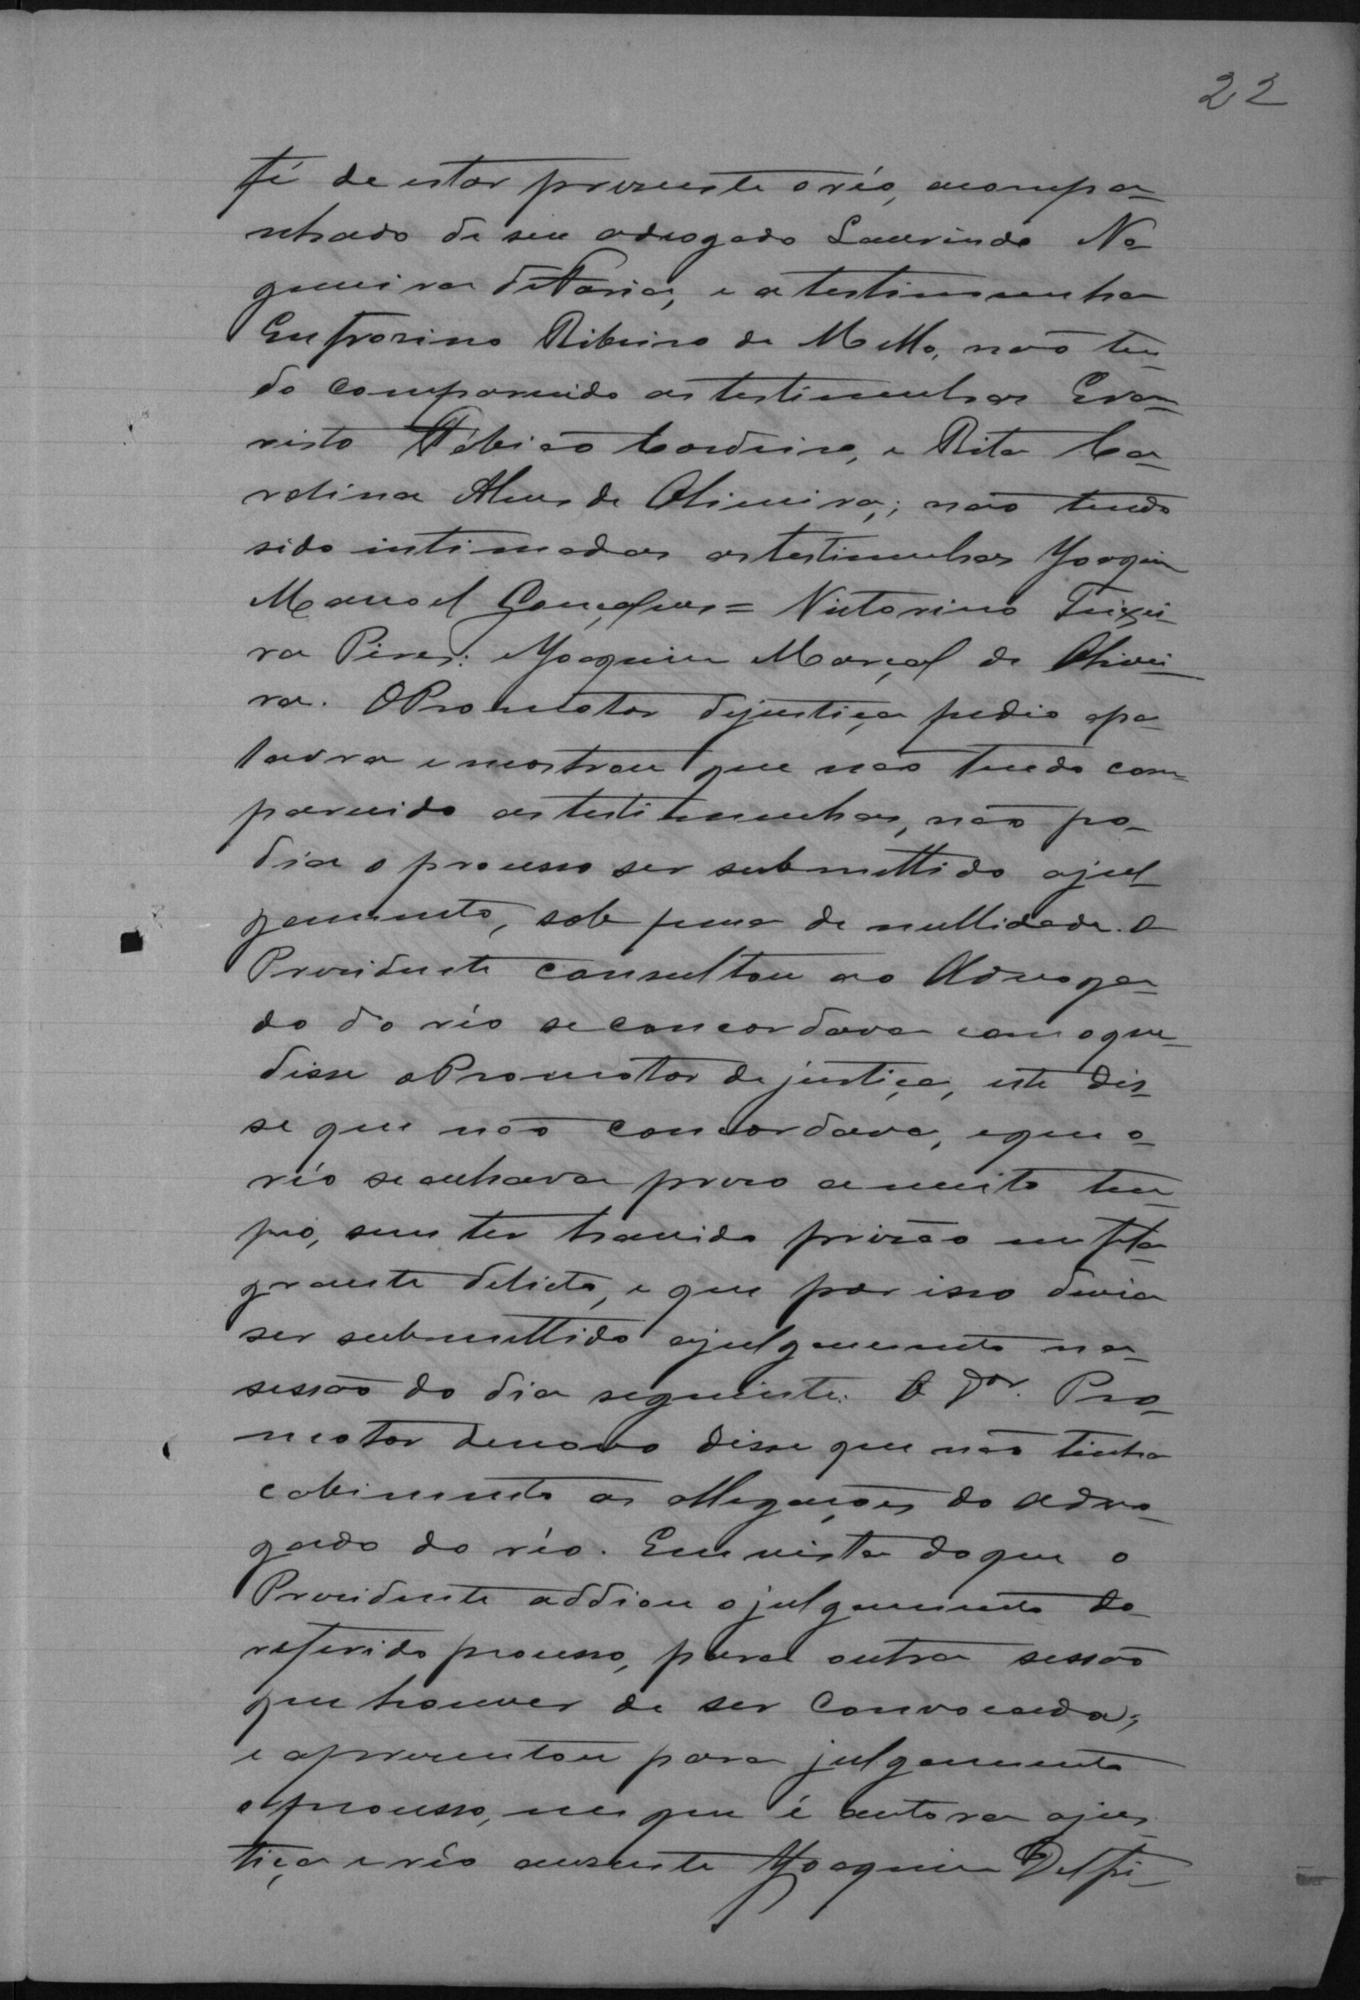 22
fé de estar prezente o réo, acompa-
nhado de seu advogado Laurindo No-
gueira de Faria, e a testimmunha
Eufrosino Ribeiro de Mello, não ten-
do comparecido as testimunhas Eva-
risto Fabião Cordeiro, e Rita Ca-
rolina Alves de Oliveira; não tendo
sido intimadas as testimunhas Joaquim
Manoel Gonçalves = Victorino Teixei-
ra Pires: e Joaquim Marçal de Olivei-
ra. O Promotor de justiça pedio a pa-
lavra e mostrou que não tendo com-
parecido as testimunhas, não po-
dia o processo ser submettido a jul-
gamento, sob pena de nullidade. O
Prezidente consultou ao Advoga-
do do réo se concordava com o que
disse o Promotor de justiça, este dis-
se que não concordava, e que o
réo se achava prezo a muito tem-
po, sem ter havido prizão em fla-
grante delicto, e que por isso devia
ser submettido a julgamento na
sessão do dia seguinte. O Dor. Pro-
motor denovo disse que não tinha
cabimento as allegações do advo-
gado do réo. Em vista do que o
Prezidente addiou o julgamento do
referido processo, para outra sessão
que houver de ser convocada;
e aprezentou para julgamento
o processo, em que é autora a jus-
tiça e réo auzente Joaquim Delfi-